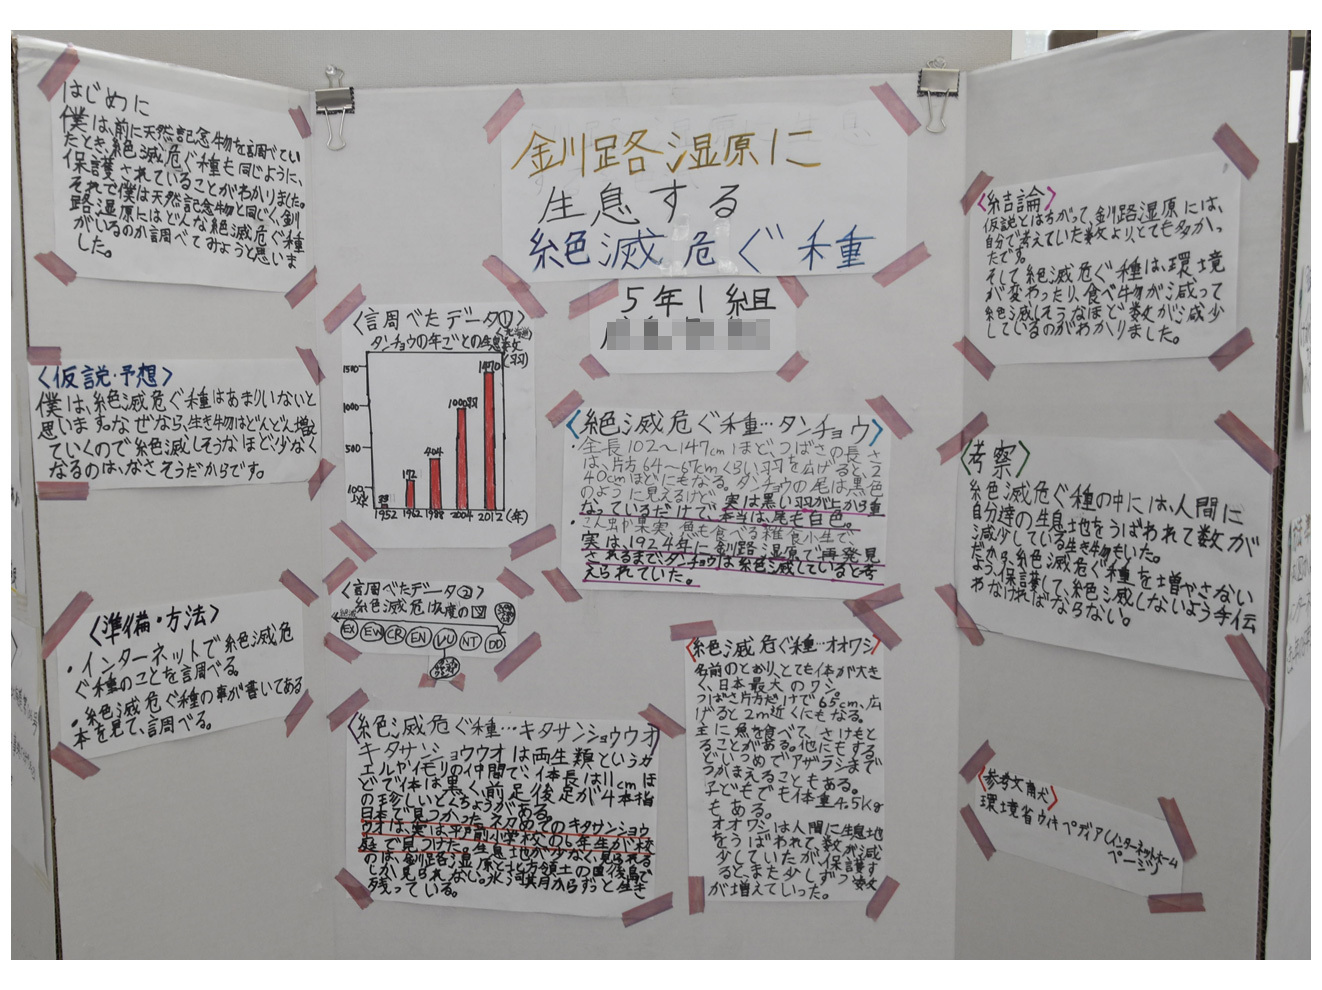 はじめに
僕は、前に天然記念物を調べてい
たとき、絶滅危ぐ種も同じように、
保護されていることがわかりました。
それで僕は天然記念物と同じく、釧
路湿原にはどんな絶滅危ぐ種
がいるのか調べてみようと思いま
した。
〈仮説・予想〉
僕は、絶滅危ぐ種はあまりいないと
思います。なぜなら、生き物はどんどん増え
ていくので絶滅しそうなほど少なく
なるのは、なさそうだからです。
〈準備・方法〉
・インターネットで絶滅危
ぐ種のことを調べる。
・絶滅危ぐ種の事が書いてある
本を見て、調べる。
釧路湿原に
生息する
絶滅危ぐ種
5年1組
〈調べたデータ①〉
タンチョウの年ごとの生息数
1500
1000
500
100
33
172
404
1000羽
1470
1952 1962 1988 2004 2012 (年)
〈調べたデータ②〉
絶滅危ぐ度の図
EX EW CR EN VU NT DD
〈絶滅危ぐ種…タンチョウ〉
・全長102〜147cmほど、つばさの長さ
は、片方64〜67cmくらい羽を広げると、2
40cmほどにもなる。タンチョウの尾は黒色
のように見えるけど実は黒い羽が上から重
なっているだけで本当は、尾も白色。
・こん虫や果実、魚も食べる雑食小生で、
実は、1924年に釧路湿原で再発見
されるまで、タンチョウは絶滅していると考
えられていた。
〈絶滅危ぐ種…キタサンショウウオ〉
キタサンショウウオは両生類というカ
エルやイモリの仲間で、体長は11cmほ
どで体は黒く、前足後足が4本指
の珍しいとくちょうがある。
日本で見つかった初めてのキタサンショウ
ウオは、実は平戸前小学校の6年生が校
庭で見つけた。生息地が少なく、見られる
のは、釧路湿原と北方領土の国後島で
しか見られない。氷河期からずっと生き
残っている。
〈絶滅危ぐ種…オオワシ〉
名前のとおり、とても体が大き
く、日本最大のワシ。
つばさ片方だけで65cm、広
げると2m近くにもなる。
主に魚を食べて、さけもと
ることがある。他にもする
どいつめでアザラシまで
つかまえることもある。
子どもでも体重4.5kg
もある。
オオワシは人間に生息地
をうばわれて、数が減
少していたが、保護す
ると、また少しずつ数
が増えていった。
〈結論〉
仮説とはちがって、釧路湿原には、
自分で考えていた数より、とても多かっ
たです。
そして絶滅危ぐ種は、環境
が変わったり、食べ物が減って
絶滅しそうなほど数が減少
しているのがわかりました。
〈考察〉
絶滅危ぐ種の中には、人間に
自分達の生息地をうばわれて数が
減少している生き物もいた。
だから、絶滅危ぐ種を増やさない
よう、保護して、絶滅しないよう手伝
わなければならない。
〈参考文献〉
環境省ウィキペディア(インターネットホーム
ページ)